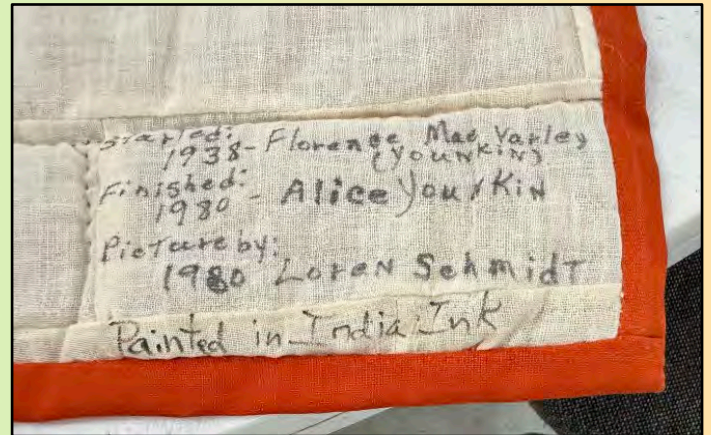 Started:
1938 - Florence Mae Varley
(YOUNKIN)
Finished:
1980 - Alice YounkiN
Picture by:
1980 LoreN SchmidT
Painted in India Ink